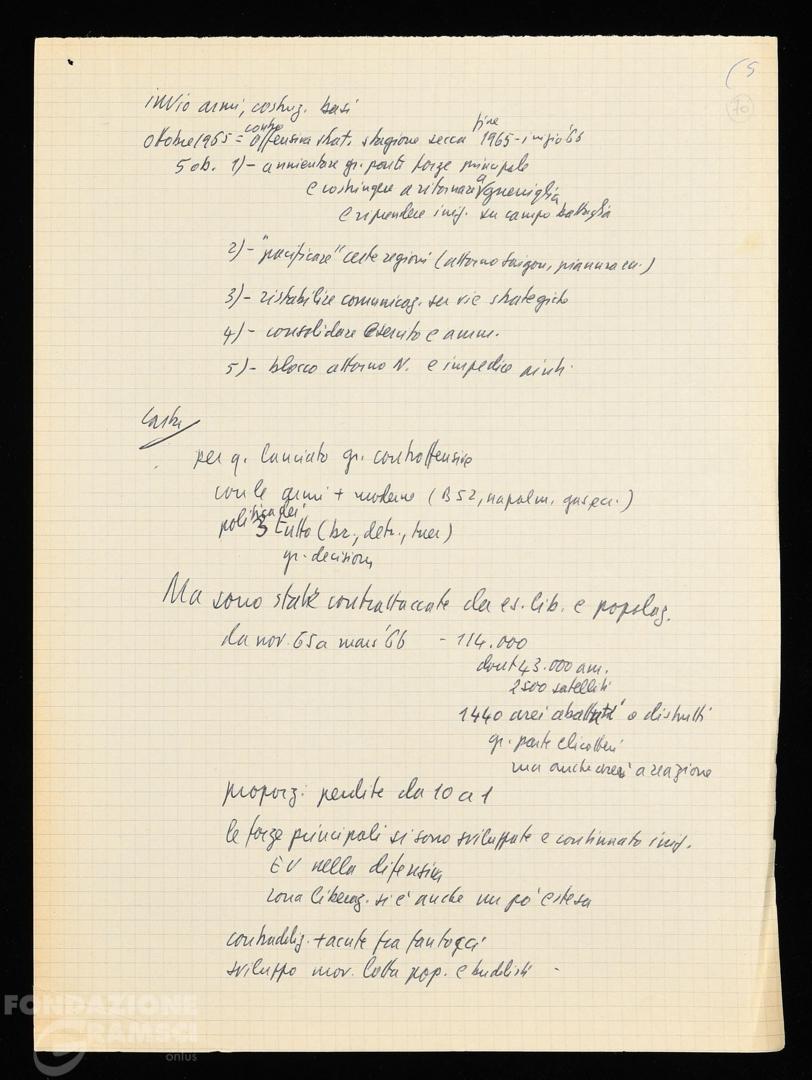 (5
70
invio armi, costruz. basi
ottobre 1965 = controffensiva strat. stagione secca fine 1965 - inizio '66
5 ob. 1) - annientare gr. parte forze principale
e costringere a ritornare a guerriglia
e riprendere iniz. su campo battaglia
2) - "pacificare" certe regioni (attorno Saigon, pianura ecc.)
3) - ristabilire comunicaz. su vie strategiche
4) - consolidare esercito e amm.
5) - blocco attorno N. e impedire aiuti.
per q. lanciato gr. controffensive
con le armi + moderne (B52, napalm, gas ecc.)
politica dei 3 tutto (br., detr., ucc)
gr. decisione
Ma sono state contrattaccate da es. lib. e popolaz.
da nov. 65 a mars '66 - 114.000
dont 43.000 am.
2500 satelliti
1440 aerei abattuti o distrutti
gr. parte elicotteri
ma anche aerei a reazione
proporz. perdite da 10 a 1
le forze principali si sono sviluppate e continuato iniz.
EU nella difensiva
zona liberaz. si è anche un po' estesa
contraddiz. + acute fra fantocci
sviluppo mov. lotta pop. e buddisti -
FONDAZIONE
GRAMSCI
onlus